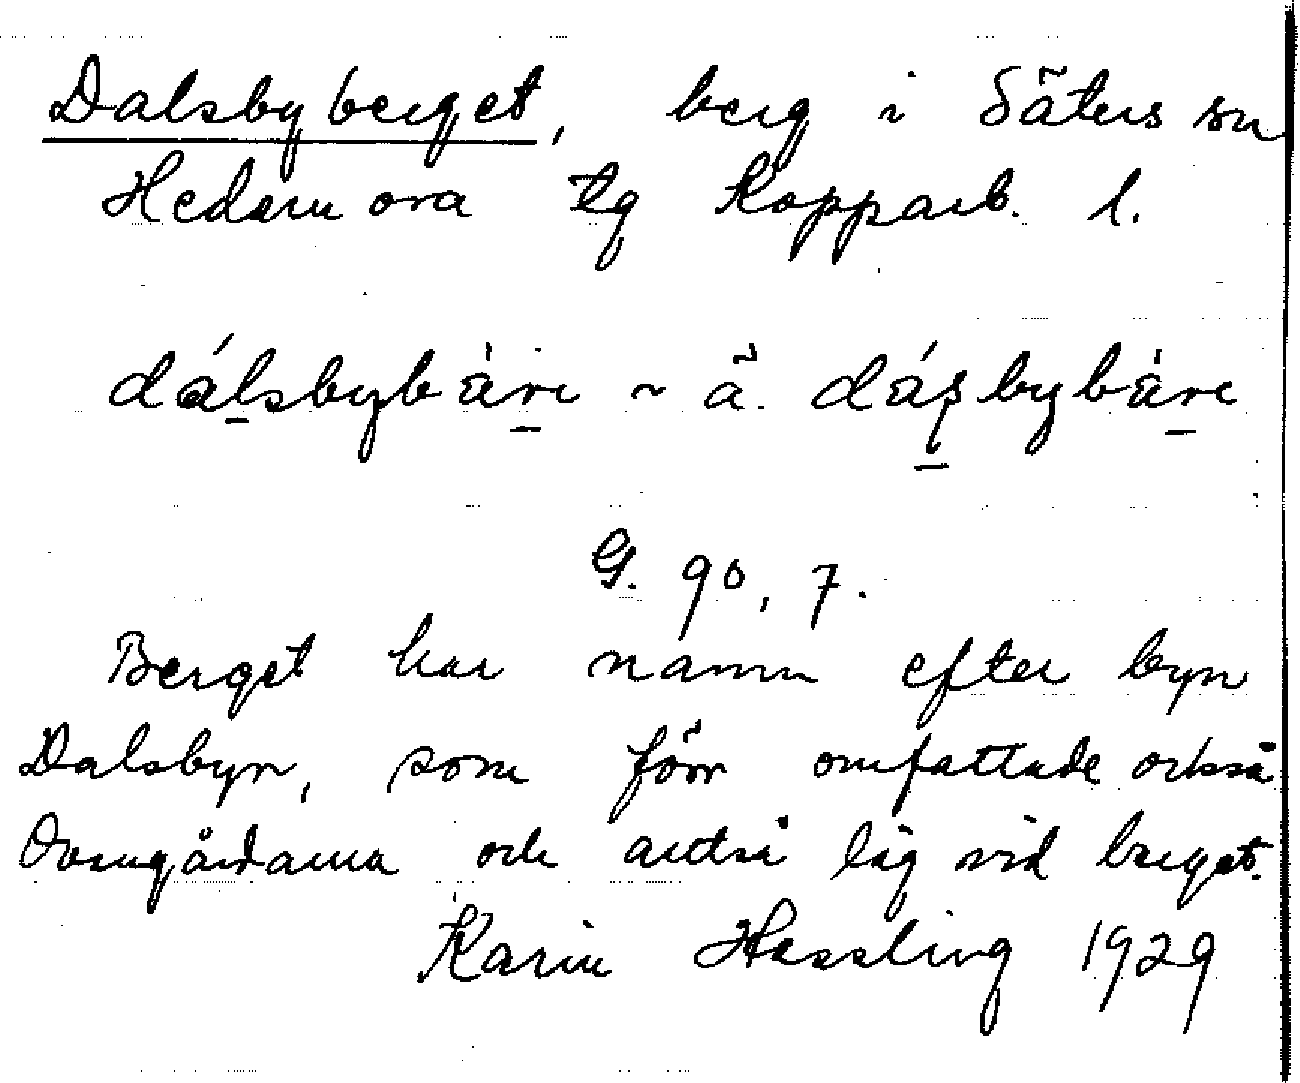 Dalsbyberget, berg i Säters sn
Hedemora tg Kopparb. l.
dálsbybàre ~ ä. dáşbybàre
G. 90, 7.
Berget har namn efter byn
Dalsbyn, som förr omfattade också
och altså låg vid berget.
Karin Hessling 1929